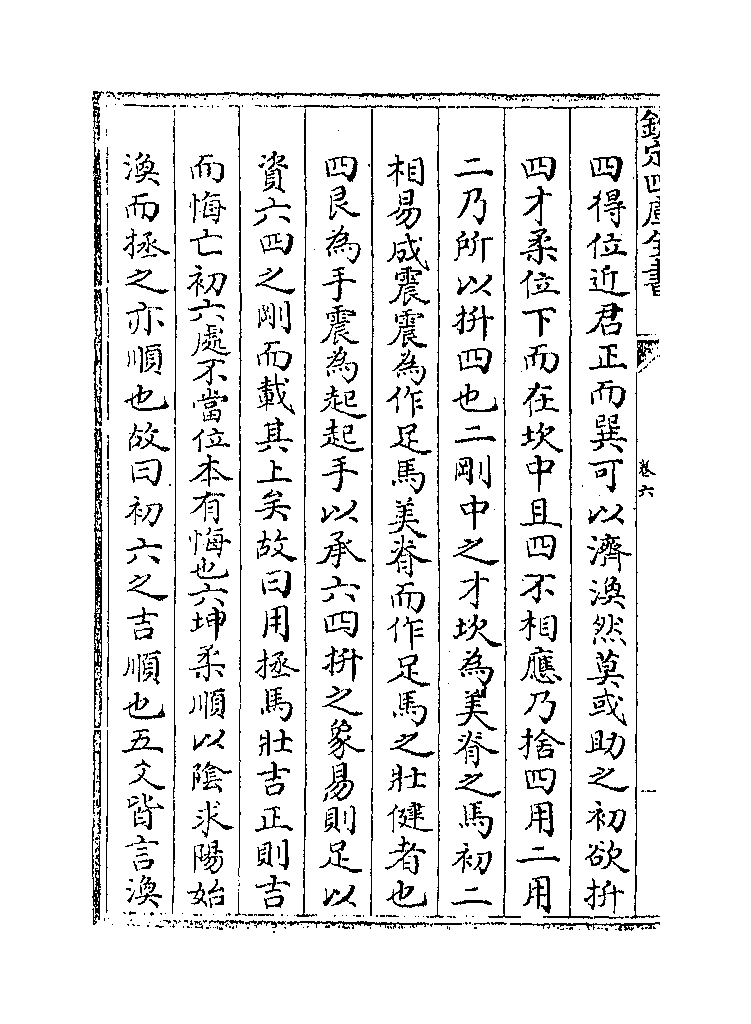 欽定四庫全書
卷六
四得位近君正而巽可以濟渙然莫或助之初欲拚
四才柔位下而在坎中且四不相應乃捨四用二用
二乃所以拚四也二剛中之才坎為美脊之馬初二
相易成震震為作足馬美脊而作足馬之壯健者也
四艮為手震為起起手以承六四拚之象易則足以
資六四之剛而載其上矣故曰用拯馬壯吉正則吉
而悔亡初六處不當位本有悔也六坤柔順以陰求陽始
渙而拯之亦順也故曰初六之吉順也五爻皆言渙